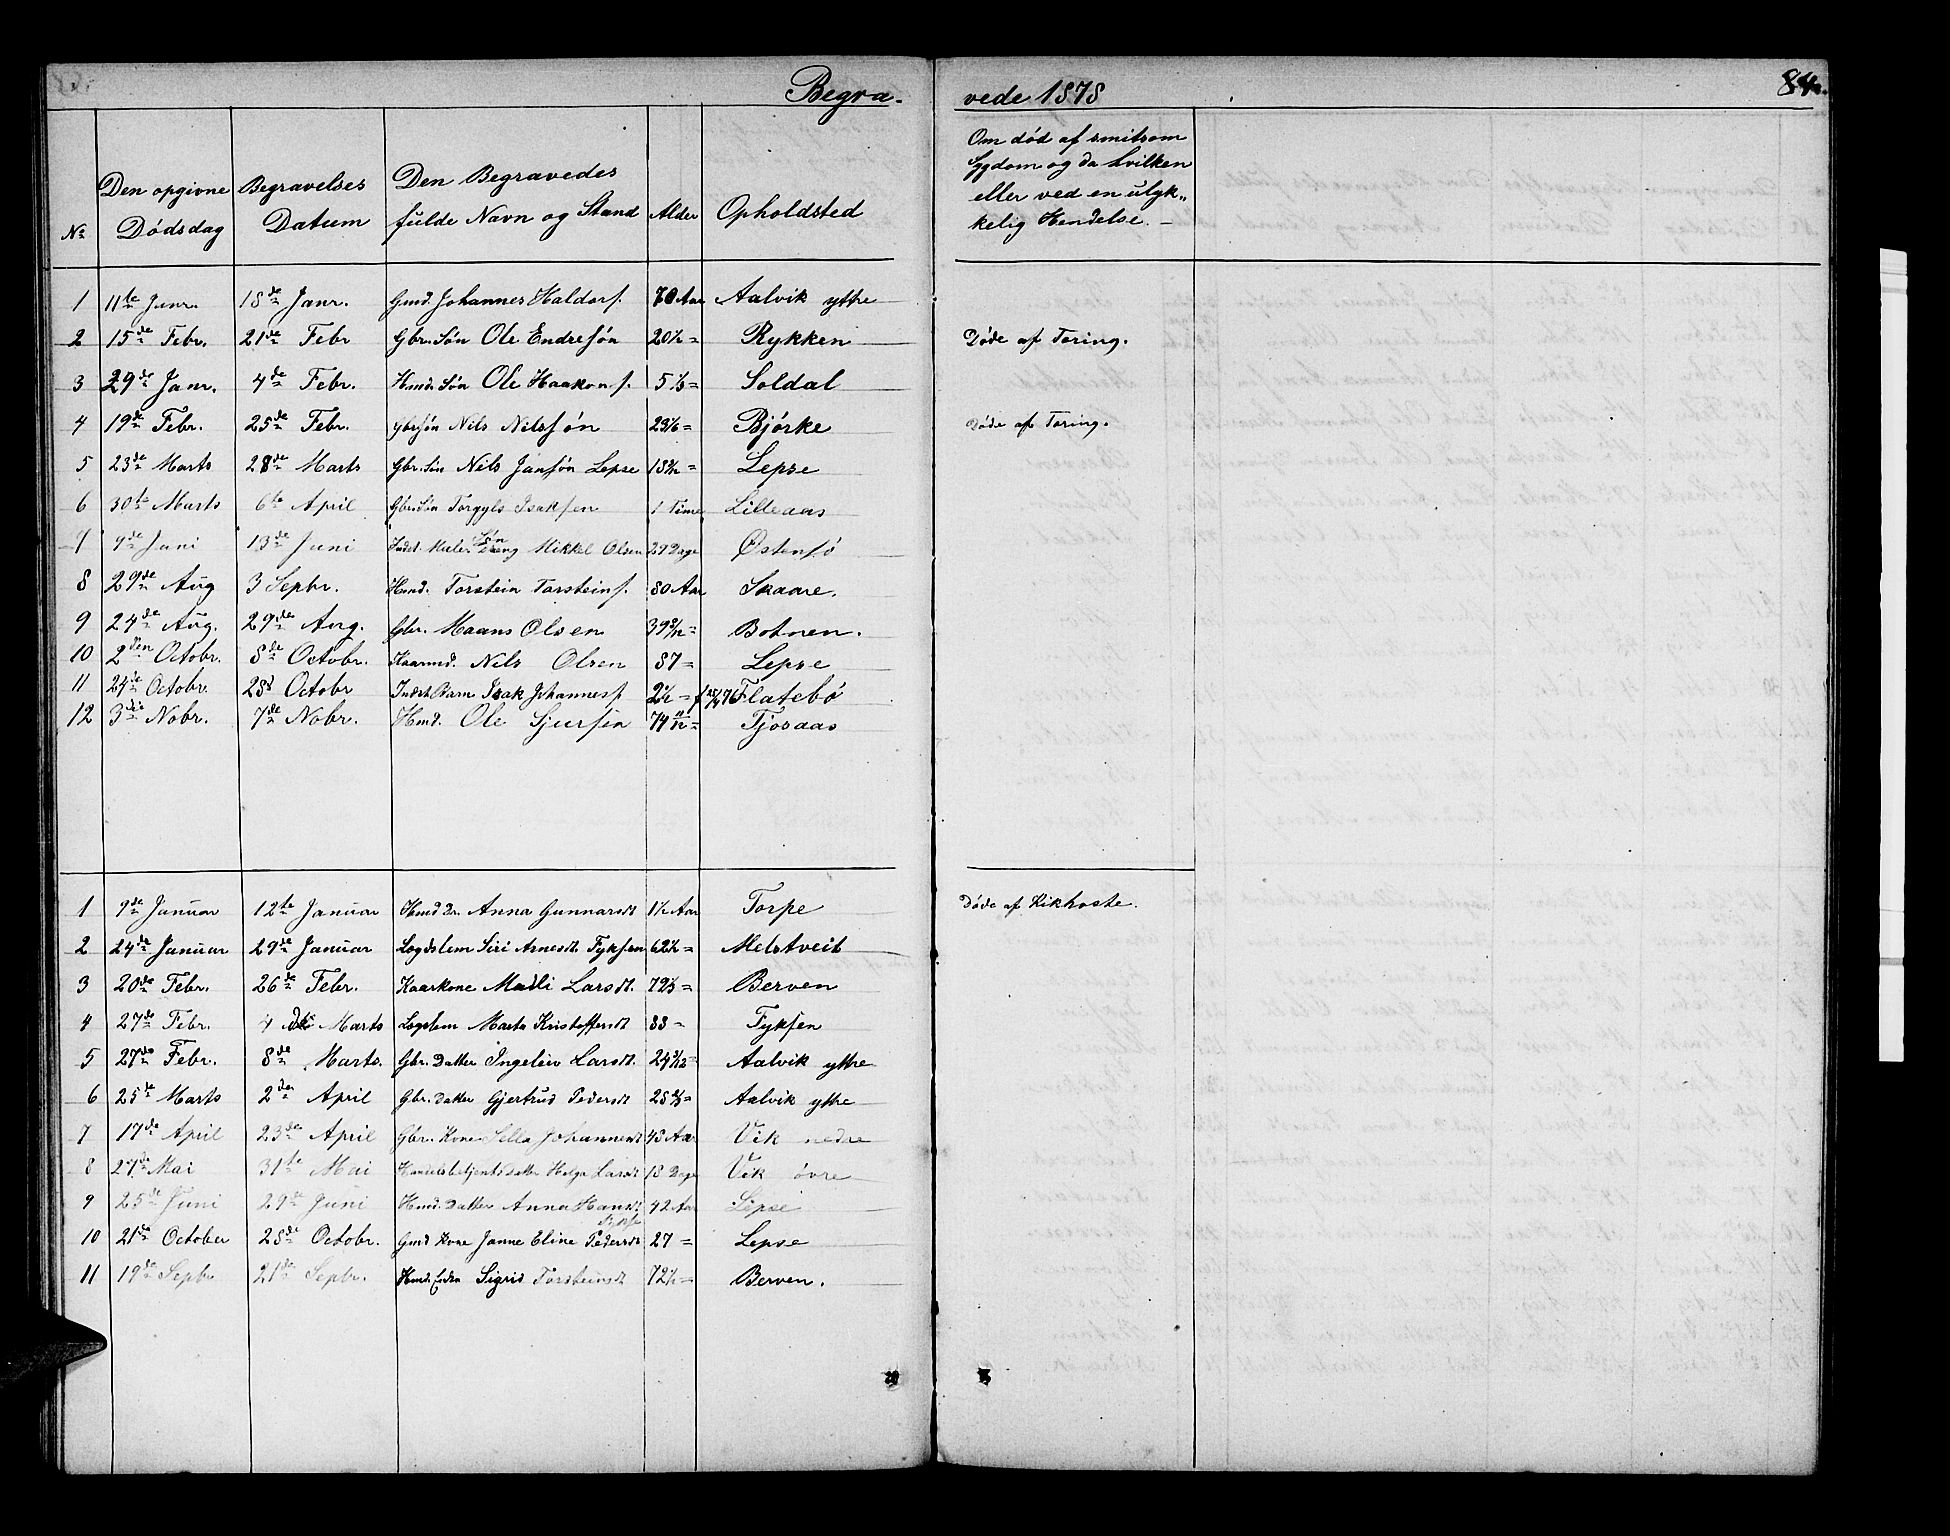 Begravede 1878
84.
Nr Den opgivne Dødsdag Begravelses Datum Den Begravedes fulde Navn og Stand Alder Opholdsted Om død af smitsom Sygdom og da hvilken eller ved en ulykkelig Hendelse.
1 11te Janr. 18de Janr. Gmd. Johannes Haldorf. 70 Aar Aalvik yttre
2 15de Febr. 21de Febr Gbr. Søn Ole Endresøn 20½ = Rykken Døde af Tæring.
3 29de Janr. 4de Febr. Hmd. Søn Ole Haakons. 5⅓ = Soldal
4 19de Febr. 25de Febr. Gbr søn Nils Nilssøn 23⅙ = Bjørke Døde af Tæring.
5 23de Marts 28de Marts Gbr. Søn Nils Jansøn Lepse Lepse
6 30te Marts 6te April Gbr. Søn Torgyls Isaksen 1 Time Lilleaas
7 9de Juni 13de Juni Mikkel Olsen 29 Dage Østensø
8 29de Aug 3 Sepbr. Hmd. Torstein Torsteins. 80 Aar Skaare.
9 24de Aug. 29de Aug. Gbr. Maans Olsen Botnen.
10 2den Octobr. 8de Octobr. Kaarmd. Nils Olsen 87 = Lepse
11 24de Octobr. 28d Octobr Indst. Barn Isak Johannesf. 2½ = Flatebø
12 3die Nobr. 7de Nobr. Hmd. Ole Sjursøn 74 11/12 = Tjosaas
1 9de Januar 12te Januar Hmd Dr. Anna Gunnarsdt 1½ Aar Torpe Døde af Kikhoste.
2 24de Januar 29de Januar Lægdslem Siri Arnesdt. Fyksen 62½ = Melstveit
3 20de Febr. 26de Febr. Kaarkone Marli Larsdt. 72⅓ = Berven
4 27de Febr. 4de Marts Lægslem Marta Kristoffersdt 88 = Fyksen
5 27de Febr. 8de Marts. Gbr. Datter Ingeleiv Larsdt. Aalvik yttre
6 25de Marts 2den April Gbr. Datter Gjertrud Pedersdt 28⅔ = Aalvik yttre
7 17de April 23de April Gbr. Kone Sella Johannesdt 43 Aar Vik nedre
8 27de Mai 31te Mai Handelsbetjents datter Helga Larsdt 18 Dage Vik øvre
9 25de Juni 29de Juni Hmd. Datter Anna Hansdt 42 Aar Lepse
10 21de October 28de Octobr. Gmd Kone Janne Eline Pedersdt 27 = Lepse
11 19de Sepbr 21de Sepbr. Hmd. Enke Sigrid Torsteinsdt 72½ = Berven.